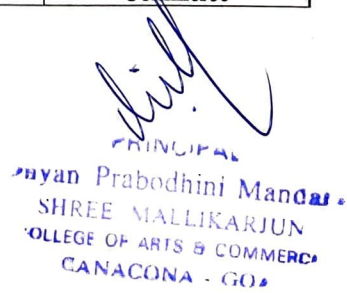 PRINCIPAL
Dnyan Prabodhini Mandal's
SHREE MALLIKARJUN
COLLEGE OF ARTS & COMMERCE
CANACONA - GOA